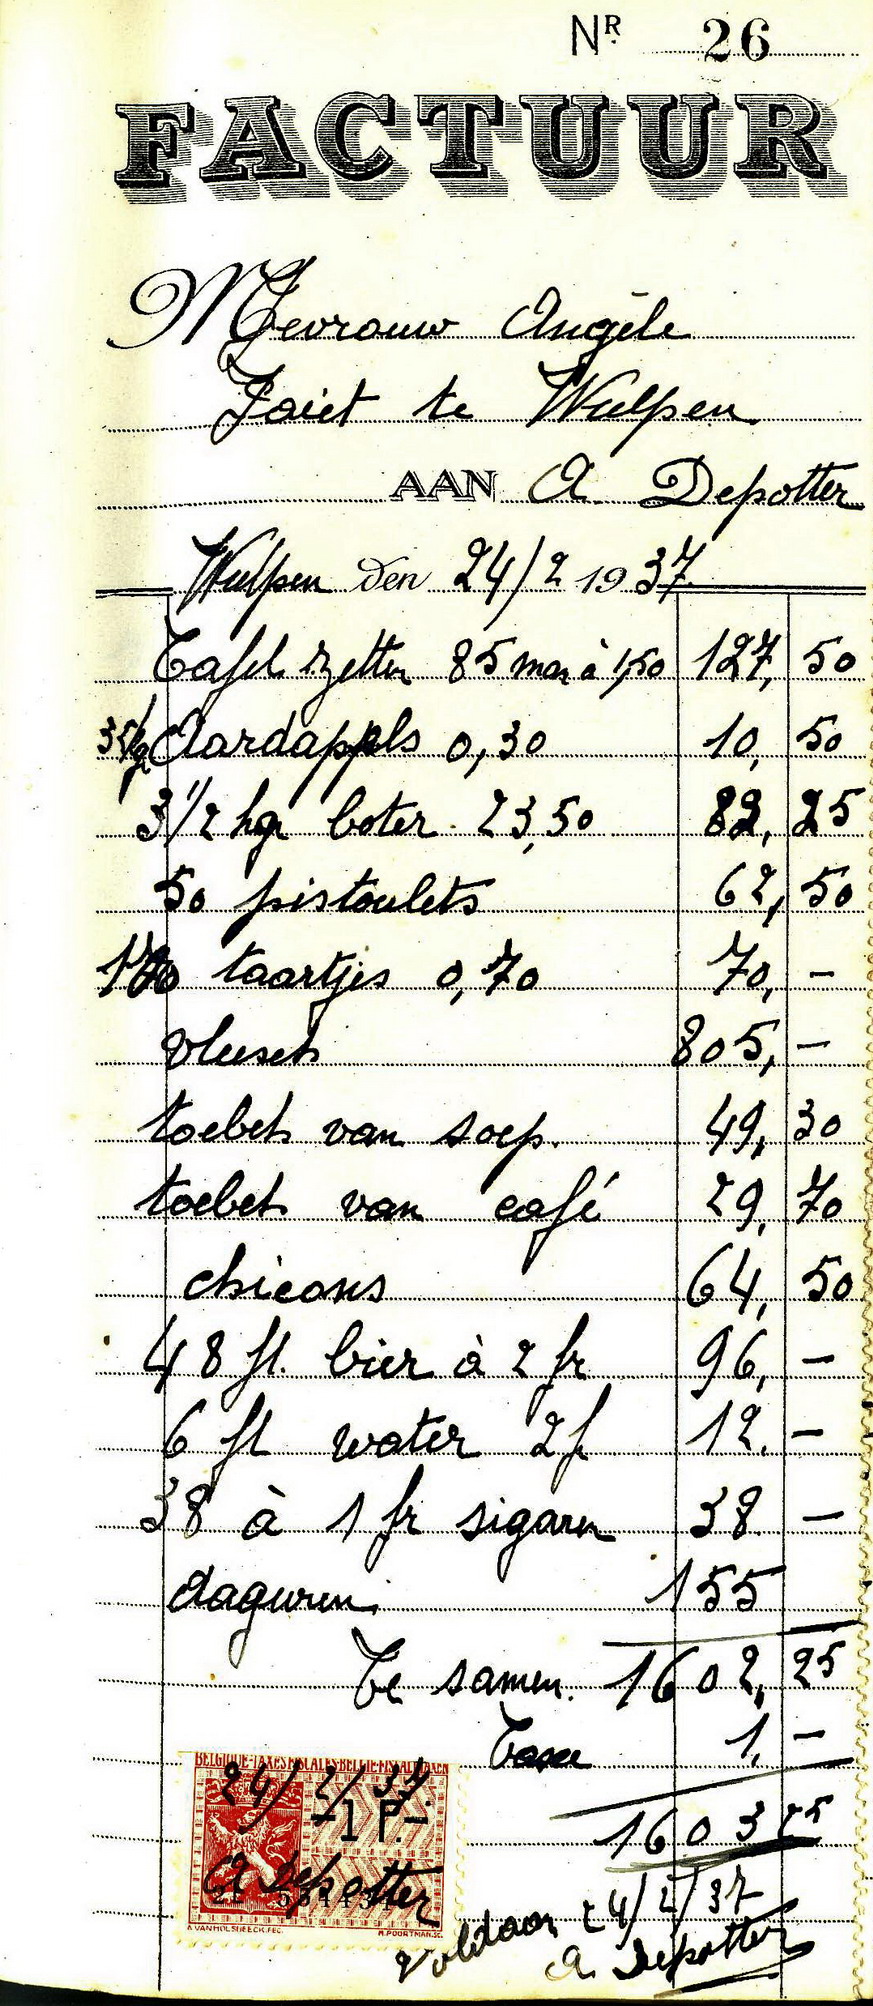 NR 26
FACTUUR
Mevrouw Angèle
Jaiet te Wulpen
AAN A Depotter
Wulpen den 24/2 1937
Tafel zetten 85 man à 1,50 127, 50
35kg Aardappls 0,30 10, 50
3 1/2 kgr boter 23,50 82, 25
50 pistoulets 62, 50
100 taartjes 0,70 70, -
vleesch 805, -
toebeh van soep. 49, 30
toebeh van café 29, 70
chicons 64, 50
48 fl. bier à 2 fr 96, -
6 fl water 2 f 12. -
38 à 1 fr sigaren 38 -
daguren 155
Te samen. 1602, 25
Taxe 1. -
1603 25
BELGIQUE-TAXES FISCALES-BELGIE-FISCALE TAXEN
24/2/37.
1 F.
A Depotter
A VAN HOLSBEECK.FEC. H.POORTMAN.SC.
Voldaan 24/2/37
A. Depotter